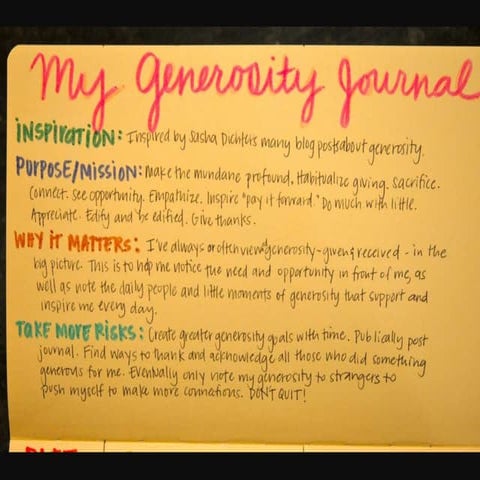 My Generosity Journal
INSPIRATION: Inspired by Sasha Dichter's many blog posts about generosity.
PURPOSE/MISSION: Make the mundane profound. Habitualize giving. Sacrifice.
Connect. See opportunity. Empathize. Inspire "pay it forward." Do much with little.
Appreciate. Edify and be edified. Give thanks.
WHY IT MATTERS: I've always or often viewed generosity - given & received - in the
big picture. This is to help me notice the need and opportunity in front of me, as
well as note the daily people and little moments of generosity that support and
inspire me every day.
TAKE MORE RISKS: Create greater generosity goals with time. Publically post
journal. Find ways to thank and acknowledge all those who did something
generous for me. Eventually only note my generosity to strangers to
push myself to make more connections. DON'T QUIT!